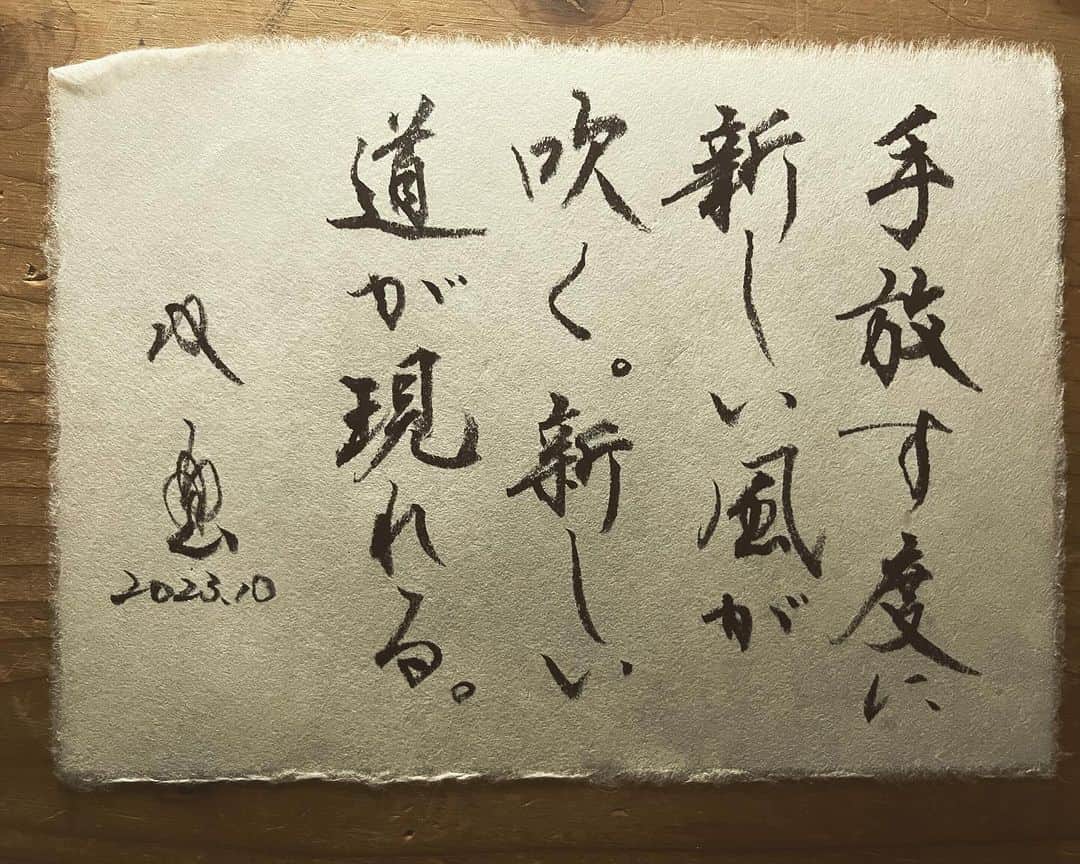 手放す度に
新しい風が
吹く。新しい
道が現れる。
2023.10